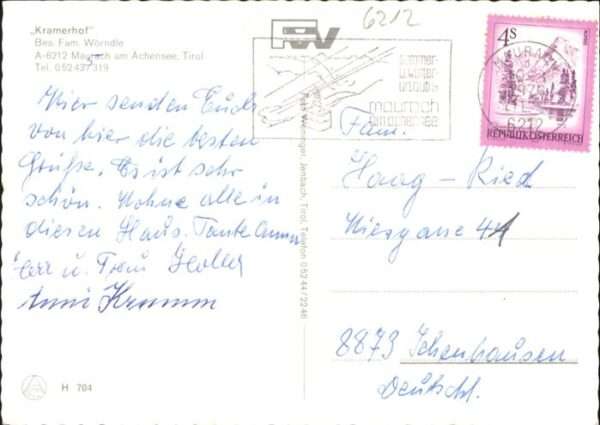 6212
„Kramerhof"
Bes. Fam. Wörndle
A-6212 Maurach am Achensee, Tirol
Tel. 05243/319
Wier senden Euch
von hier die besten
Grüße. Es ist sehr
schön. Wohne alle in
diesen Haus. Tante Anna
Herr u. Frau
Anni Kramm
H 704
Jenbach, Tirol, Telefon 05244/2246
sommer-
u. winter-
urlaub in
maurach
am achensee
MAURACH
6212
4S
REPUBLIK ÖSTERREICH
Fam.
Haag - Ried
44
8873 Ichenhausen
Deutschl.